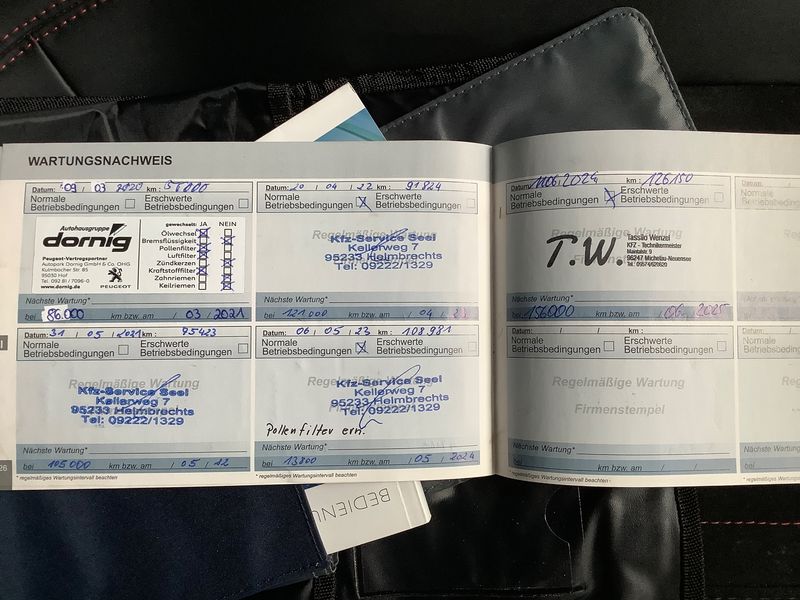 WARTUNGSNACHWEIS
Datum: 09 / 03 2020 km: 000
Normale Betriebsbedingungen
Erschwerte Betriebsbedingungen
Autohausgruppe
dornig
Peugeot-Vertragspartner
Autopark Dornig GmbH & Co. OHG
Kulmbacher Str. 85
95030 Hof
Tel. 092 81 / 7096-0
www.dornig.de
PEUGEOT
gewechselt: JA NEIN
Ölwechsel
Bremsflüssigkeit
Pollenfilter
Luftfilter
Zündkerzen
Kraftstofffilter
Zahnriemen
Keilriemen
Nächste Wartung*
bei 86.000 km bzw. am / 03 / 2021
Datum: 31 / 05 / 2021 km: 75423
Normale Betriebsbedingungen
Erschwerte Betriebsbedingungen
Regelmäßige Wartung
Kfz-Service Seel
Kellerweg 7
95233 Helmbrechts
Tel: 09222/1329
Nächste Wartung*
bei 105.000 km bzw. am / 05 / 12
* regelmäßiges Wartungsintervall beachten
26
Datum: 20 / 04 / 22 km: 91824
Normale Betriebsbedingungen
Erschwerte Betriebsbedingungen
Regelmäßige Wartung
Kfz-Service Seel
Kellerweg 7
95233 Helmbrechts
Tel: 09222/1329
Nächste Wartung*
bei 121.000 km bzw. am / 04 / 23
Datum: 06 / 05 / 23 km: 108.981
Normale Betriebsbedingungen
Erschwerte Betriebsbedingungen
Regelmäßige Wartung
Kfz-Service Seel
Kellerweg 7
95233 Helmbrechts
Tel: 09222/1329
Pollenfilter ern.
Nächste Wartung*
bei 13800 km bzw. am / 05 / 2024
* regelmäßiges Wartungsintervall beachten
Datum: 11.06.2024 km: 126150
Normale Betriebsbedingungen
Erschwerte Betriebsbedingungen
Regelmäßige Wartung
T.W.
Tassilo Wenzel
KFZ - Technikermeister
96247 Michelau-Neuensee
Nächste Wartung*
bei 156000 km bzw. am / 06 / 2025
Datum: / / km:
Normale Betriebsbedingungen
Erschwerte Betriebsbedingungen
Regelmäßige Wartung
Firmenstempel
Nächste Wartung*
bei km bzw. am / /
* regelmäßiges Wartungsintervall beachten
Datum:
Normale
Betriebsbe
Nächste Wa
bei
Datum:
Normale
Betriebsbed
Nächste Wa
bei
* regelmäßiges
BEDIENU